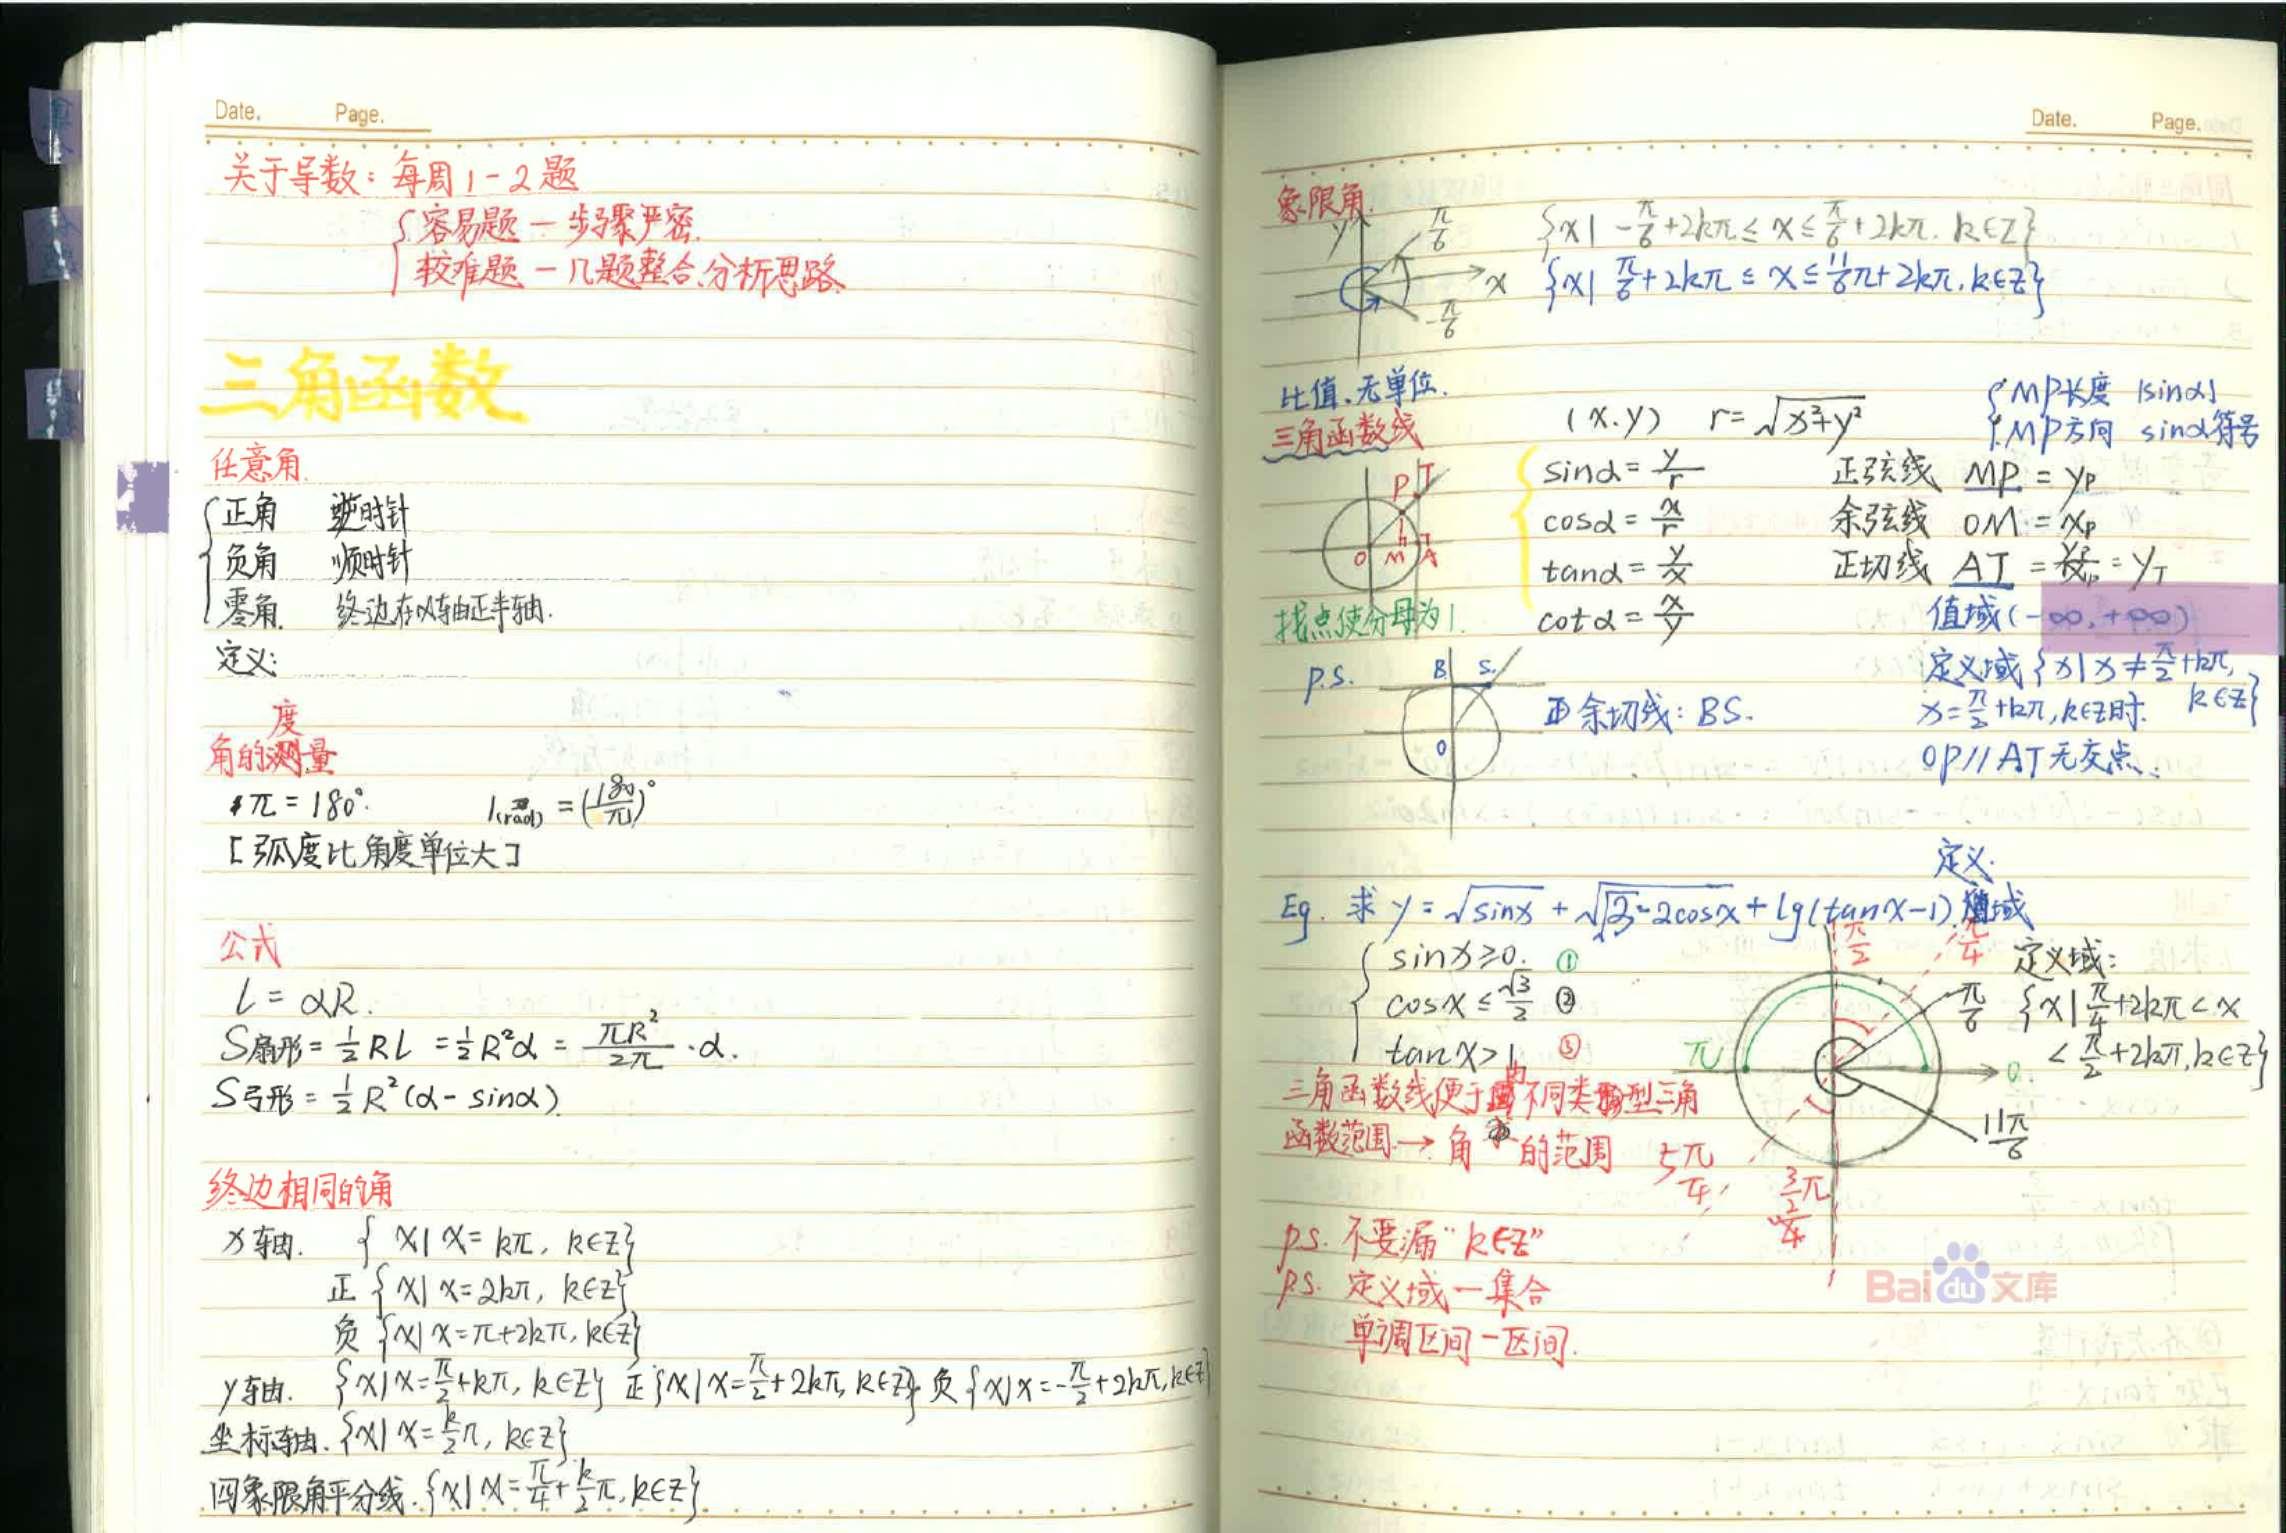 Date. Page.
关于导数：每周1-2题
容易题 — 步骤严密.
较难题 — 几题整合、分析思路.
三角函数
任意角.
正角 逆时针
负角 顺时针
零角. 终边在x轴正半轴.
定义:
度
角的测量
π = 180°. 1(rad) = (180/π)°
[弧度比角度单位大]
公式
l = αR.
S扇形 = 1/2 Rl = 1/2 R²α = πR²/2π · α.
S弓形 = 1/2 R²(α - sinα).
终边相同的角
x轴. {x| x = kπ, k∈Z}
正 {x| x = 2kπ, k∈Z}
负 {x| x = π+2kπ, k∈Z}
y轴. {x| x = π/2 + kπ, k∈Z} 正 {x| x = π/2 + 2kπ, k∈Z} 负 {x| x = -π/2 + 2kπ, k∈Z}
坐标轴. {x| x = k/2 π, k∈Z}
四象限角平分线. {x| x = π/4 + k/2 π, k∈Z}
Date. Page.
象限角.
y π/6 x -π/6
{x| -π/6 + 2kπ ≤ x ≤ π/6 + 2kπ. k∈Z}
{x| π/6 + 2kπ ≤ x ≤ 11/6 π + 2kπ, k∈Z}
比值、无单位.
三角函数线
(x.y) r = √x²+y²
MP长度 |sinα|
MP方向 sinα符号
P T O M A
sinα = y/r 正弦线 MP = yP
cosα = x/r 余弦线 OM = xP
tanα = y/x 正切线 AT = yP/xP = yT
cotα = x/y 值域(-∞, +∞)
找点使分母为1.
定义域 {x| x ≠ π/2 + kπ, k∈Z}
x = π/2 + kπ, k∈Z时.
OP // AT 无交点.
p.s. B S. O
余切线: BS.
定义.
Eg. 求 y = √sinx + √√3-2cosx + lg(tanx-1). 域
sinx ≥ 0. ①
cosx ≤ √3/2 ②
tanx > 1 ③
π/2 π/4 π/6 π 0. 11π/6 5π/4 3/2 π
定义域:
{x| π/4 + 2kπ < x
< π/2 + 2kπ, k∈Z}
三角函数线便于 由 不同类型三角
函数范围 → 角 的范围
p.s. 不要漏“k∈Z”
p.s. 定义域 — 集合
单调区间 — 区间.
Baidu文库